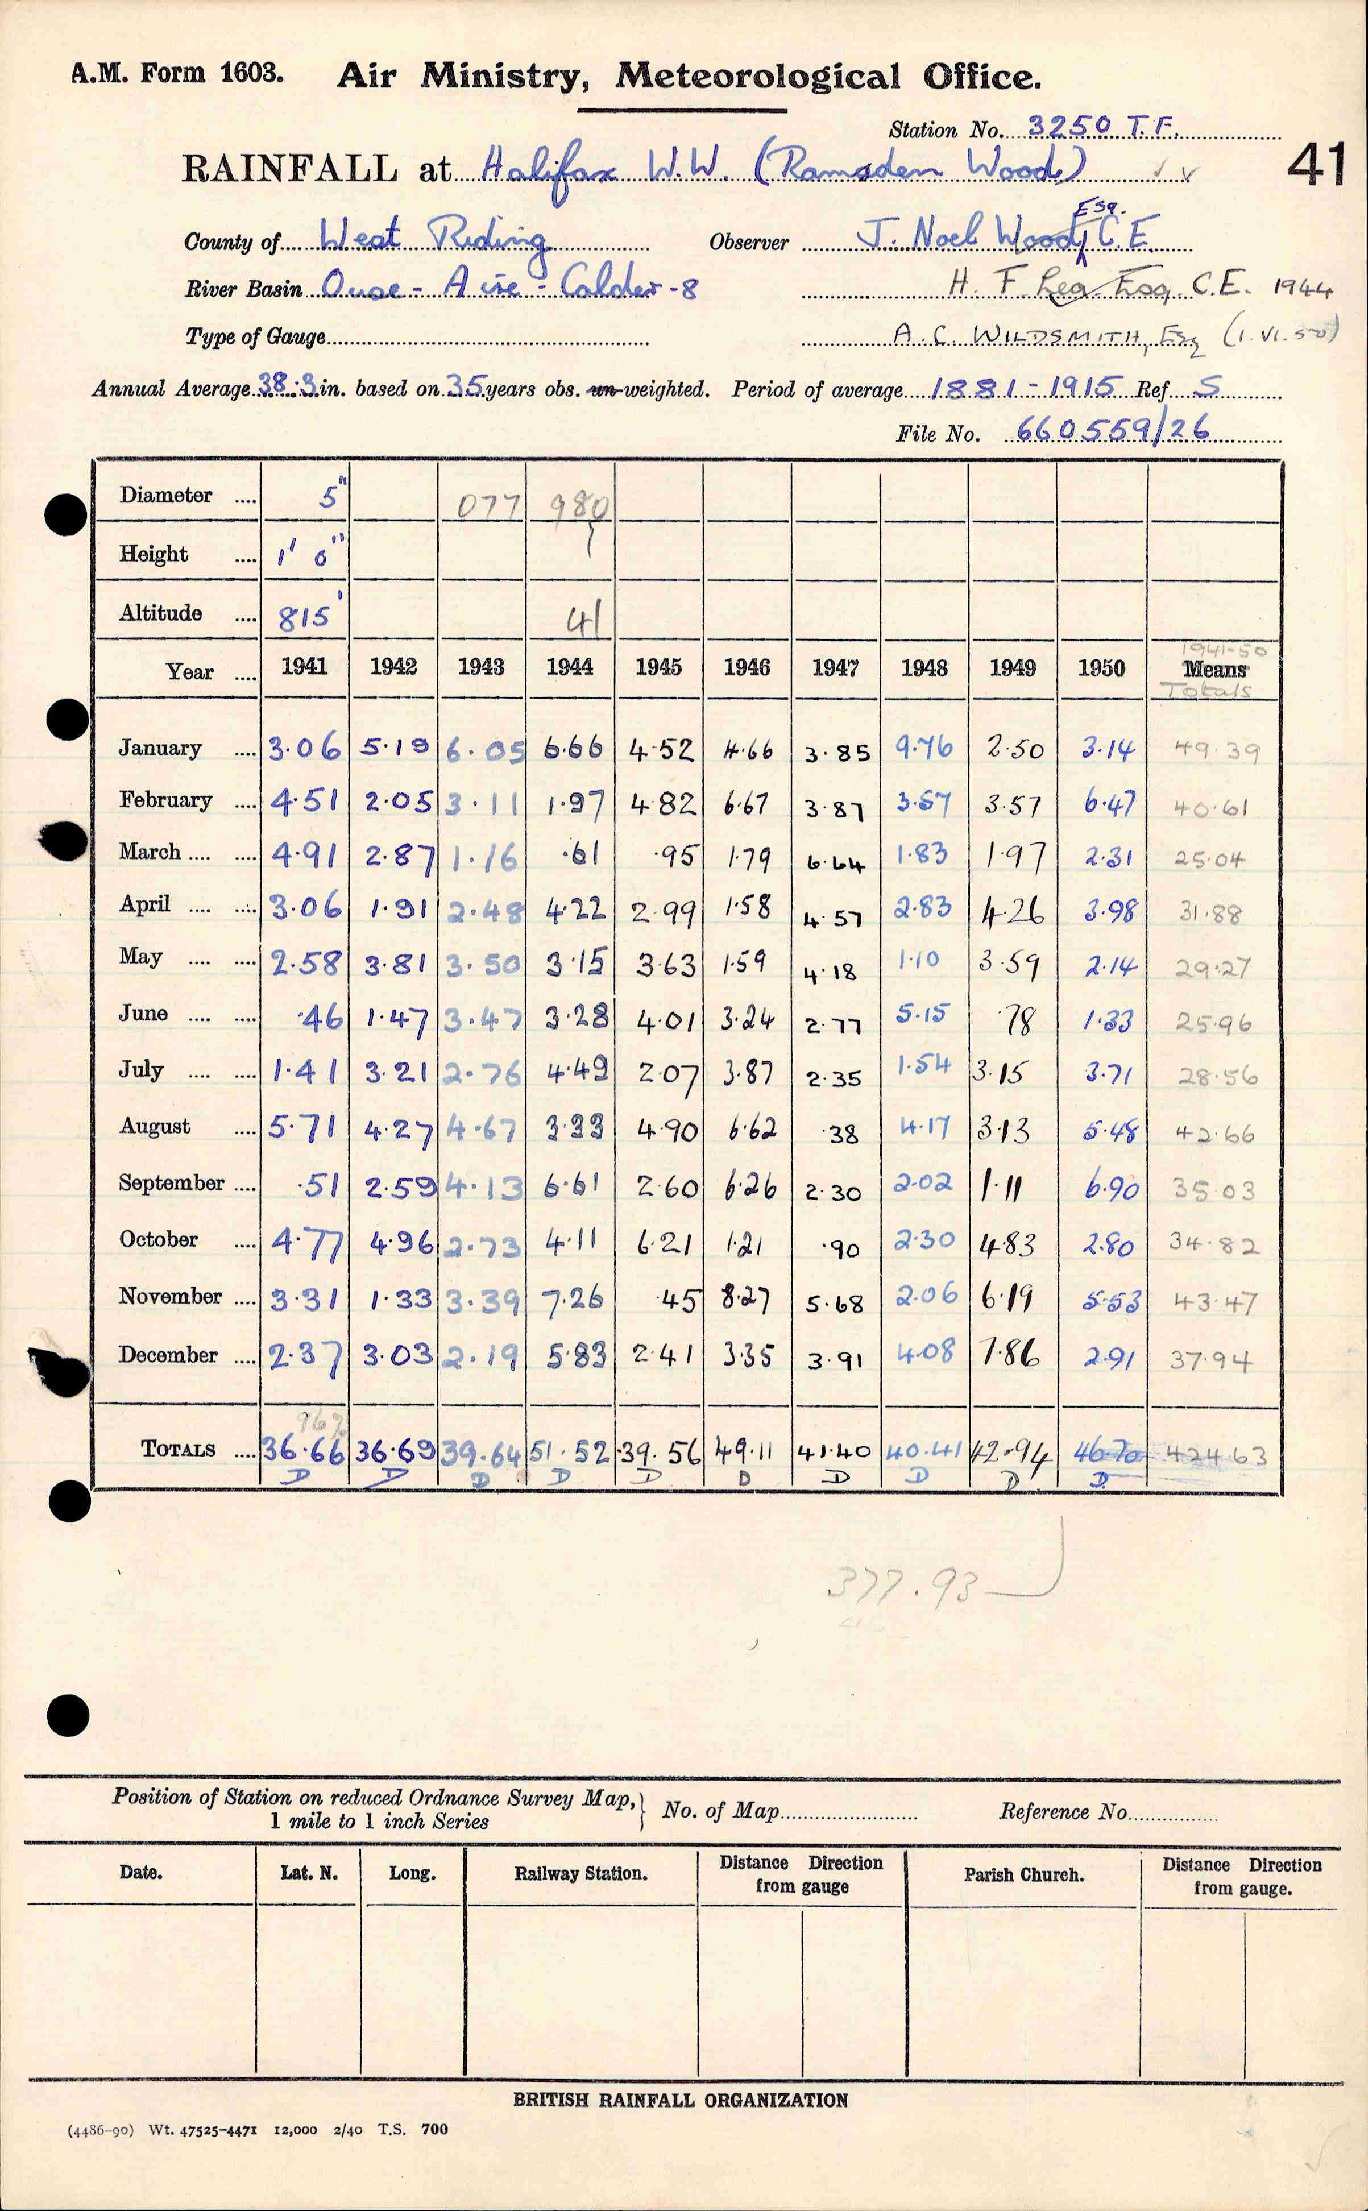 A.M. Form 1603. Air Ministry, Meteorological Office.
Station No. 3250 T.F.
41
RAINFALL at Halifax W.W. (Ramsden Wood)
County of West Riding Observer J. Noel Wood, Esq. C.E.
River Basin Ouse - Aire - Calder - 8 H. F. Lea Esq. C.E. 1944
Type of Gauge A. C. WILDSMITH, Esq (1.VI.50)
Annual Average 38.3 in. based on 35 years obs. un-weighted. Period of average 1881-1915 Ref S
File No. 660559/26
Diameter 5" 077 980
Height 1' 0"
Altitude 815' 41
1941-50
Year 1941 1942 1943 1944 1945 1946 1947 1948 1949 1950 Means
Totals
January 3.06 5.19 6.05 6.66 4.52 4.66 3.85 9.76 2.50 3.14 49.39
February 4.51 2.05 3.11 1.97 4.82 6.67 3.87 3.57 3.57 6.47 40.61
March 4.91 2.87 1.16 .61 .95 1.79 6.64 1.83 1.97 2.31 25.04
April 3.06 1.91 2.48 4.22 2.99 1.58 4.57 2.83 4.26 3.98 31.88
May 2.58 3.81 3.50 3.15 3.63 1.59 4.18 1.10 3.59 2.14 29.27
June .46 1.47 3.47 3.28 4.01 3.24 2.77 5.15 .78 1.33 25.96
July 1.41 3.21 2.76 4.49 2.07 3.87 2.35 1.54 3.15 3.71 28.56
August 5.71 4.27 4.67 3.33 4.90 6.62 .38 4.17 3.13 5.48 42.66
September .51 2.59 4.13 6.61 2.60 6.26 2.30 2.02 1.11 6.90 35.03
October 4.77 4.96 2.73 4.11 6.21 1.21 .90 2.30 4.83 2.80 34.82
November 3.31 1.33 3.39 7.26 .45 8.27 5.68 2.06 6.19 5.53 43.47
December 2.37 3.03 2.19 5.83 2.41 3.35 3.91 4.08 7.86 2.91 37.94
TOTALS 36.66 36.69 39.64 51.52 39.56 49.11 41.40 40.41 42.94 46.70 424.63
D D D D D D D D D D
377.93
Position of Station on reduced Ordnance Survey Map, No. of Map Reference No.
1 mile to 1 inch Series
Date. Lat. N. Long. Railway Station. Distance Direction from gauge Parish Church. Distance Direction from gauge.
BRITISH RAINFALL ORGANIZATION
(4486-90) Wt. 47525-4471 12,000 2/40 T.S. 700